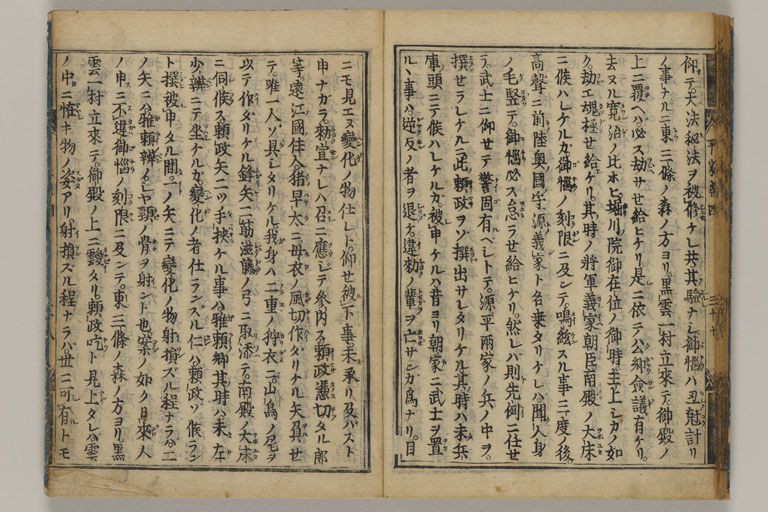 仰テ大法秘法ヲ被修ケレ共其驗ナシ御悩ハ丑剋計リ
ノ事ナルニ東三條ノ森ノ方ヨリ黒雲一村立來テ御殿ノ
上ニ覆ヘハ必ス劫サセ給ヒケリ是ニ依テ公卿僉議有ケリ
去ヌル寛治ノ比ホヒ堀川院御在位ノ御時主上シカノ如
ク劫エ魂極セ給ケリ其時ノ將軍義家朝臣南殿ノ大床
ニ候ハレケルカ御悩ノ刻限ニ及ンテ鳴絃スル事三度ノ後
高聲ニ前陸奥國守源義家ト名乗タリケレハ聞人身
ノ毛竪テ御悩必ス怠ラセ給ヒケリ然レハ則先例ニ任セ
テ武士ニ仰セテ警固有ヘシトテ源平両家ノ兵ノ中ヲ
撰セラレケルニ此頼政ヲソ撰出サレタリケル其時ハ未兵
庫頭ニテ候ハレケルカ被申ケルハ昔ヨリ朝家ニ武士ヲ置
ルヽ事ハ逆反ノ者ヲ退ケ違勅ノ輩ヲ亡サンカ為ナリ目
ニモ見エヌ変化ノ物仕レト仰セ被下事未承リ及ハスト
申ナカラ勅宣ナレハ召ニ應シテ參内ス頼政憑切タル郎
等遠江國住人猪早太ニ母衣ノ風切作タリケル矢負セ
テ唯一人ソ具シタリケル我身ハ二重ノ狩衣ニ山鳥ノ尾ヲ
以テ作タリケル鋒矢二筋滋藤ノ弓ニ取添テ南殿ノ大床
ニ伺候ス頼政矢二ツ手挾ケル事ハ雅頼卿其時ハ未左
少辨ニテ坐ケルカ変化ノ者仕ランズル仁ハ頼政ソ候ラン
ト撰被申タル間一ノ矢ニテ変化ノ物射損スル程ナラハ二
ノ矢ニハ雅頼辨ノシヤ頸ノ骨ヲ射ント也案ノ如ク日來人
ノ申ニ不違御悩ノ刻限ニ及ンテ東三條ノ森ノ方ヨリ黒
雲一村立來テ御殿ノ上ニ靉タリ頼政吃ト見上タレハ雲
ノ中ニ恠キ物ノ姿アリ射損ズル程ナラハ世ニ可有トモ